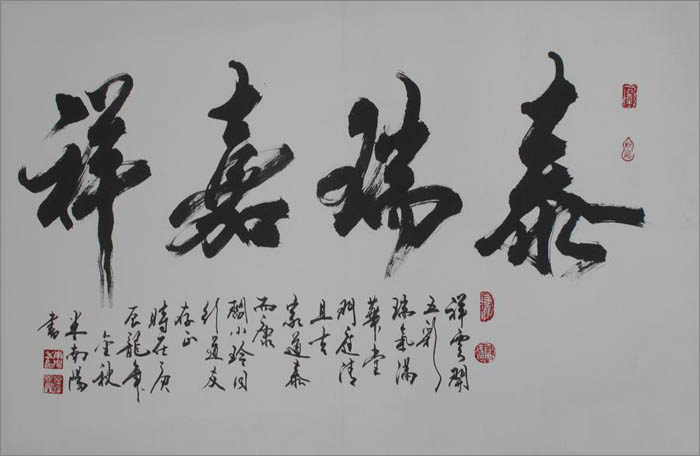 泰瑞嘉祥
祥雲開
五彩
瑞氣滿
華堂
門庭清
且吉
家道泰
而康
小玲同
行道友
存正
時在庚
辰龍年
金秋
米南陽
書